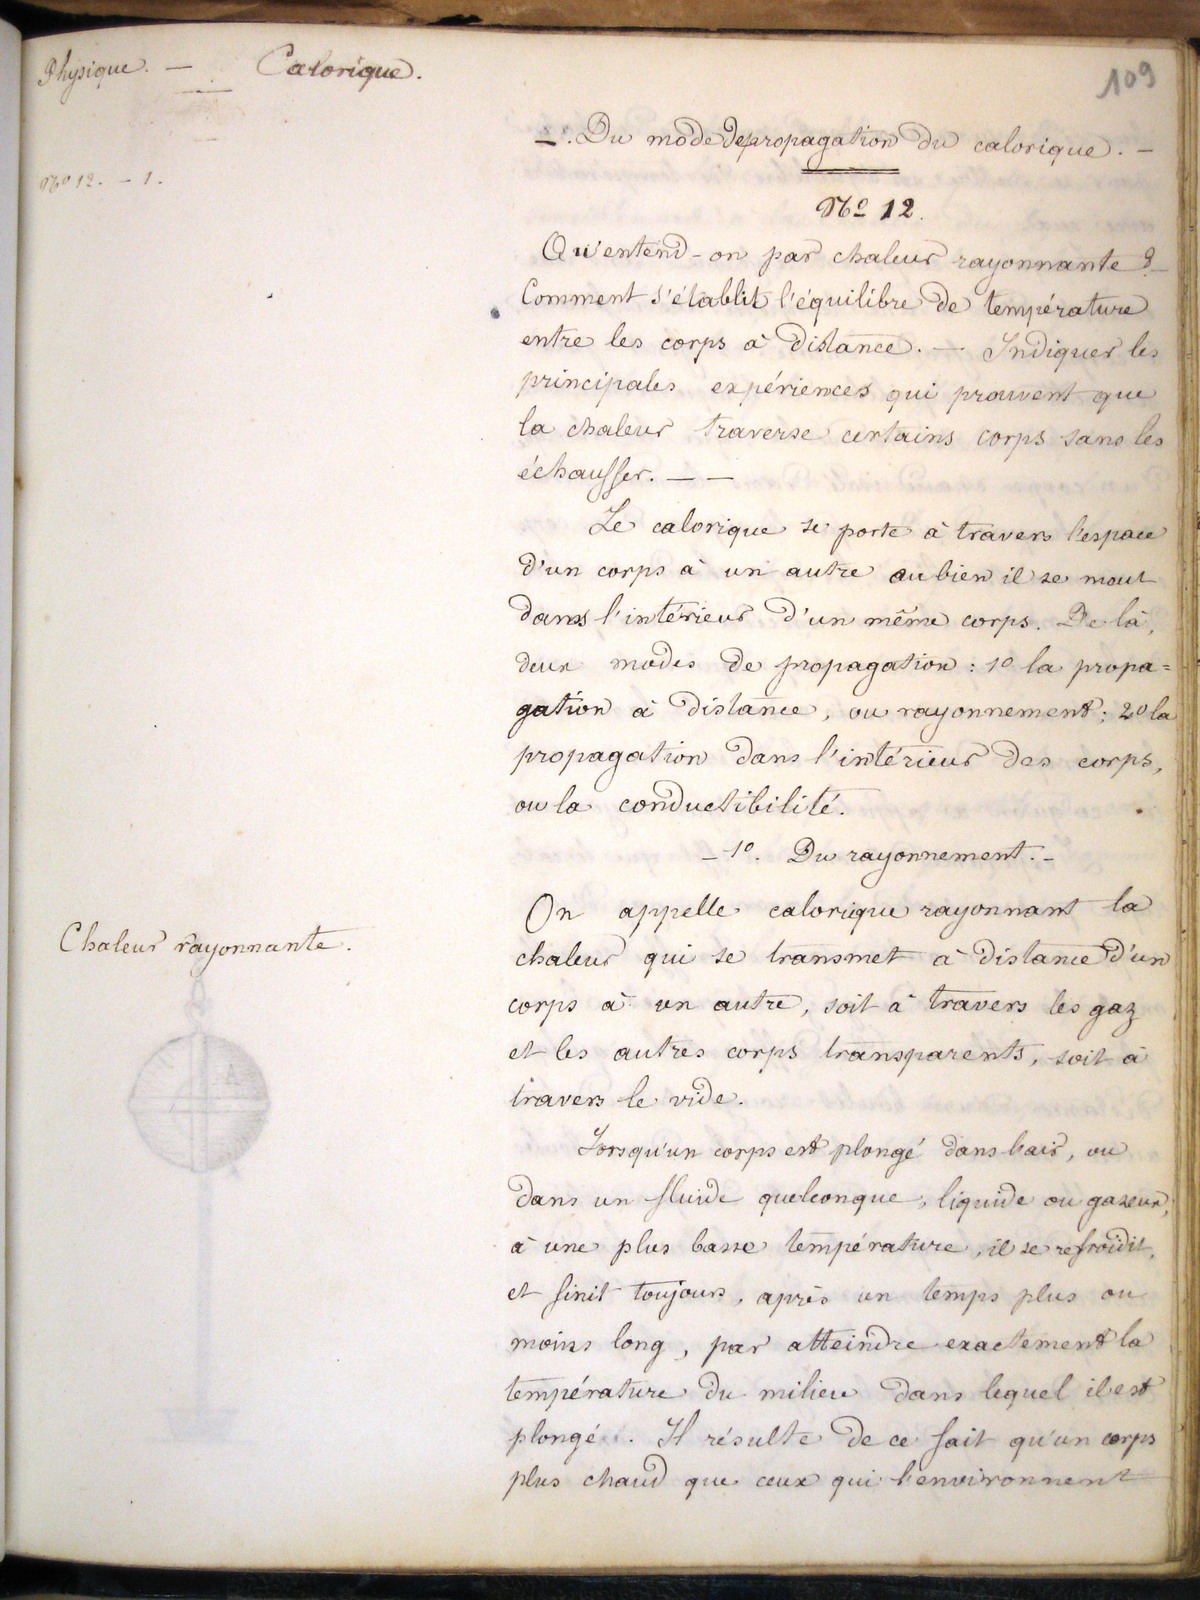 Physique. — Calorique.
109
N° 12. - 1.
— . Du mode de propagation du calorique. —
N° 12.
Qu'entend-on par chaleur rayonnante ? —
Comment s'établit l'équilibre de température
entre les corps à distance. — Indiquer les
principales expériences qui prouvent que
la chaleur traverse certains corps sans les
échauffer. — —
Le calorique se porte à travers l'espace
d'un corps à un autre ou bien il se meut
dans l'intérieur d'un même corps. De là,
deux modes de propagation : 1° la propa=
gation à distance, ou rayonnement ; 2° la
propagation dans l'intérieur des corps,
ou la conductibilité.
— 1°. Du rayonnement. —
On appelle calorique rayonnant la
Chaleur rayonnante.
chaleur qui se transmet à distance d'un
corps à un autre, soit à travers les gaz
et les autres corps transparents, soit à
travers le vide.
Lorsqu'un corps est plongé dans l'air, ou
dans un fluide quelconque, liquide ou gazeux,
à une plus basse température, il se refroidit,
et finit toujours, après un temps plus ou
moins long, par atteindre exactement la
température du milieu dans lequel il est
plongé. Il résulte de ce fait qu'un corps
plus chaud que ceux qui l'environnent